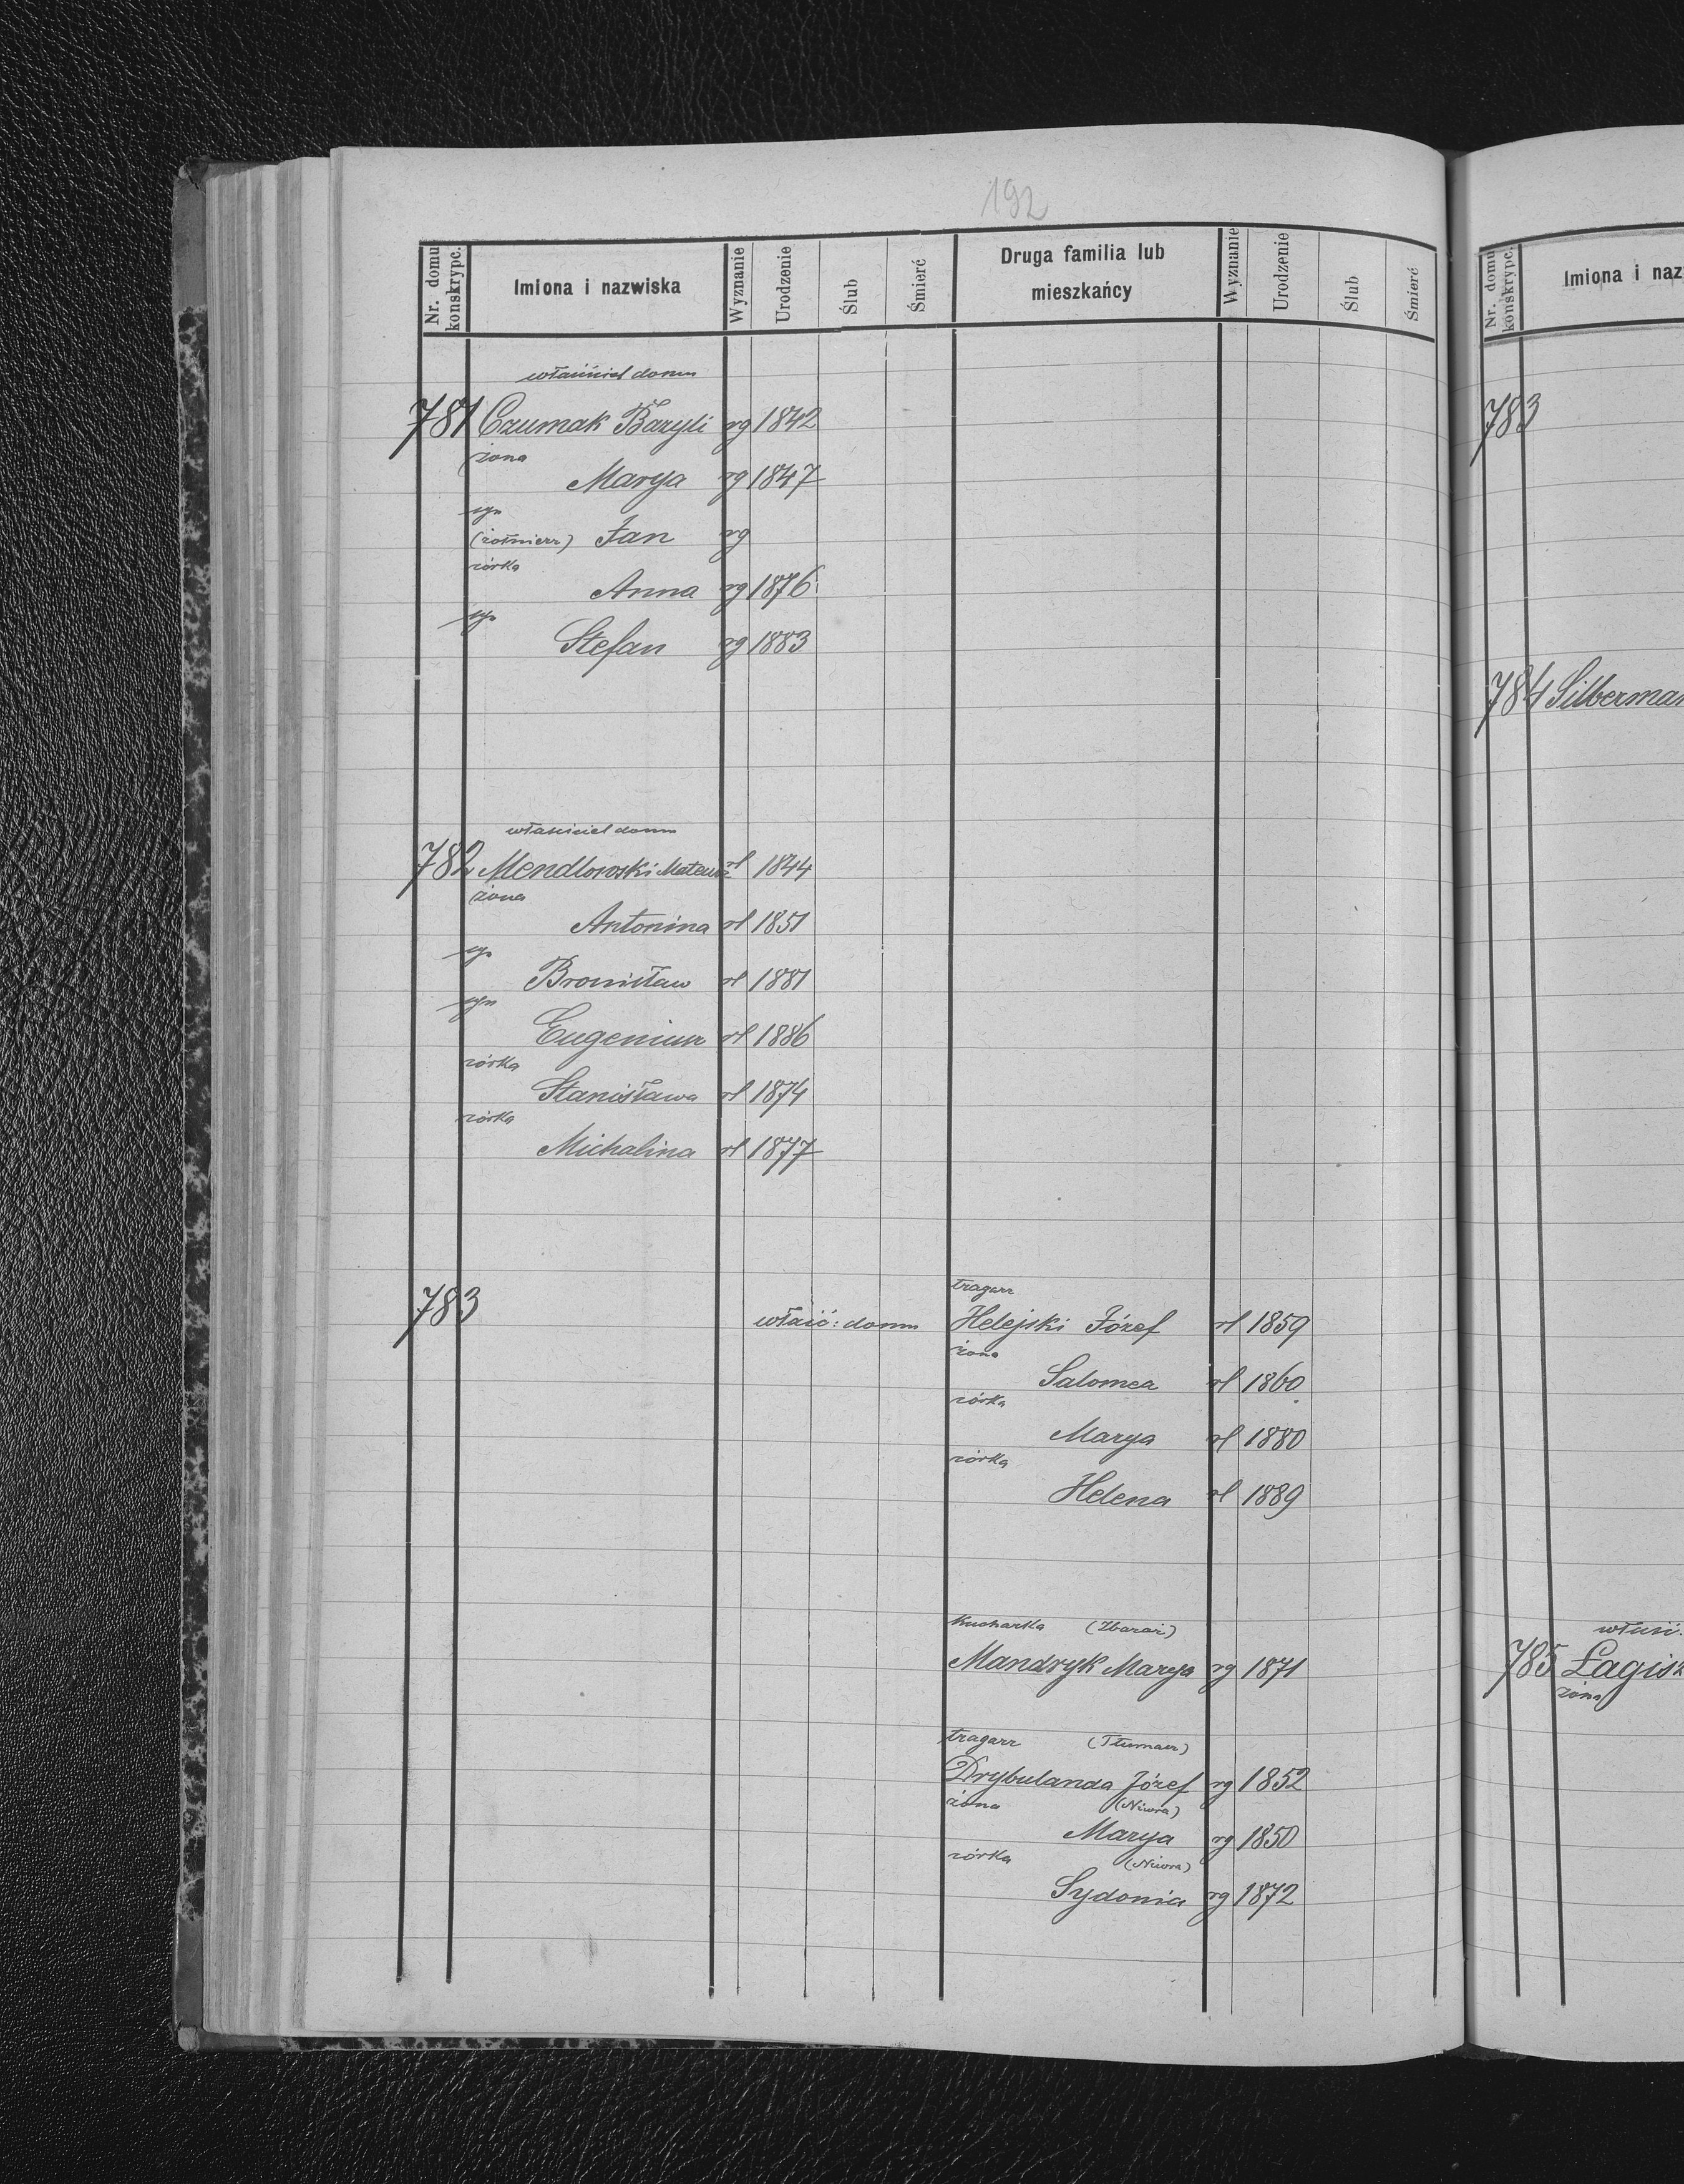 192
Nr. domu konskrypc.
Imiona i nazwiska
Wyznanie
Urodzenie
Ślub
Śmierć
Druga familia lub mieszkańcy
Wyznanie
Urodzenie
Ślub
Śmierć
właściciel domu
781 Czumak Bazyli rg 1842
żona
Marya rg 1847
syn
(żołnierz) Jan rg
córka
Anna rg 1876
syn
Stefan rg 1883
właściciel domu
782 Mendlowski Mateusz rl 1844
żona
Antonina rl 1851
syn
Bronisław rl 1881
syn
Eugeniusz rl 1886
córka
Stanisława rl 1874
córka
Michalina rl 1877
tragarz
783 właść: domu Helejski Józef rl 1859
żona
Salomea rl 1860
córka
Marya rl 1880
córka
Helena rl 1889
Kucharka (Zbaraż)
Mandryk Marya rg 1871
tragarz (Tłumacz)
Drybulanda Józef rg 1852
żona (Niwra)
Marya rg 1850
córka (Niwra)
Sydonia rg 1872
Nr. domu konskrypc.
Imiona i naz
783
784 Silberman
właść.
785 Łagisz
żona